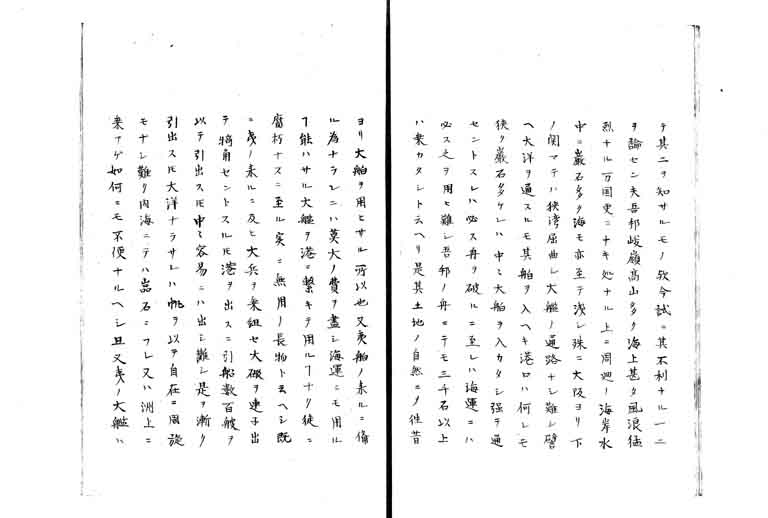 テ其二ヲ知サルモノ歟今試ニ其不利ナル一二
ヲ論セン夫吾邦峻嶺高山多ク海上甚タ風浪猛
烈ナル万国更ニナキ処ナル上ニ周廻ノ海岸水
中ニ巌石多ク海モ亦至テ浅シ殊ニ大阪ヨリ下
ノ関マテハ狭湾屈曲シ大艦ノ通路ナシ難シ譬
ヘ大洋ヲ通スルモ其船ヲ入ヘキ港口ハ何レモ
狭ク巌石多ケレハ中々大船ヲ入カタシ強テ通
セントスレハ必ス舟ヲ破ルニ至レハ海運ニハ
必ス之ヲ用ヒ難シ吾邦ノ舟ニテモ三千石以上
ハ乗カタシト云ヘリ是其土地ノ自然ニタ往昔
ヨリ大船ヲ用ヒサル所以也又夷船ノ来ルニ備
ル為ナランニハ莫大ノ費ヲ尽シ海運ニモ用ル
ヿ能ハサル大艦ヲ港ニ繋キテ用ルヿナク徒ニ
腐朽ナスニ至ル実ニ無用ノ長物ト云ヘシ既
ニ夷ノ来ルニ及ヒ大兵ヲ乗組セ大砲ヲ連子出
テ犄角セントスルモ港ヲ出スニ引船数百艘ヲ
以テ引出スモ中々容易ニハ出シ難シ是ヲ漸ク
引出スモ大洋ナラサレハ帆ヲ以テ自在ニ周旋
モナシ難ク内海ニテハ嵓石ニフレ又ハ洲上ニ
乗アゲ如何ニモ不便ナルヘシ且又夷ノ大艦ハ